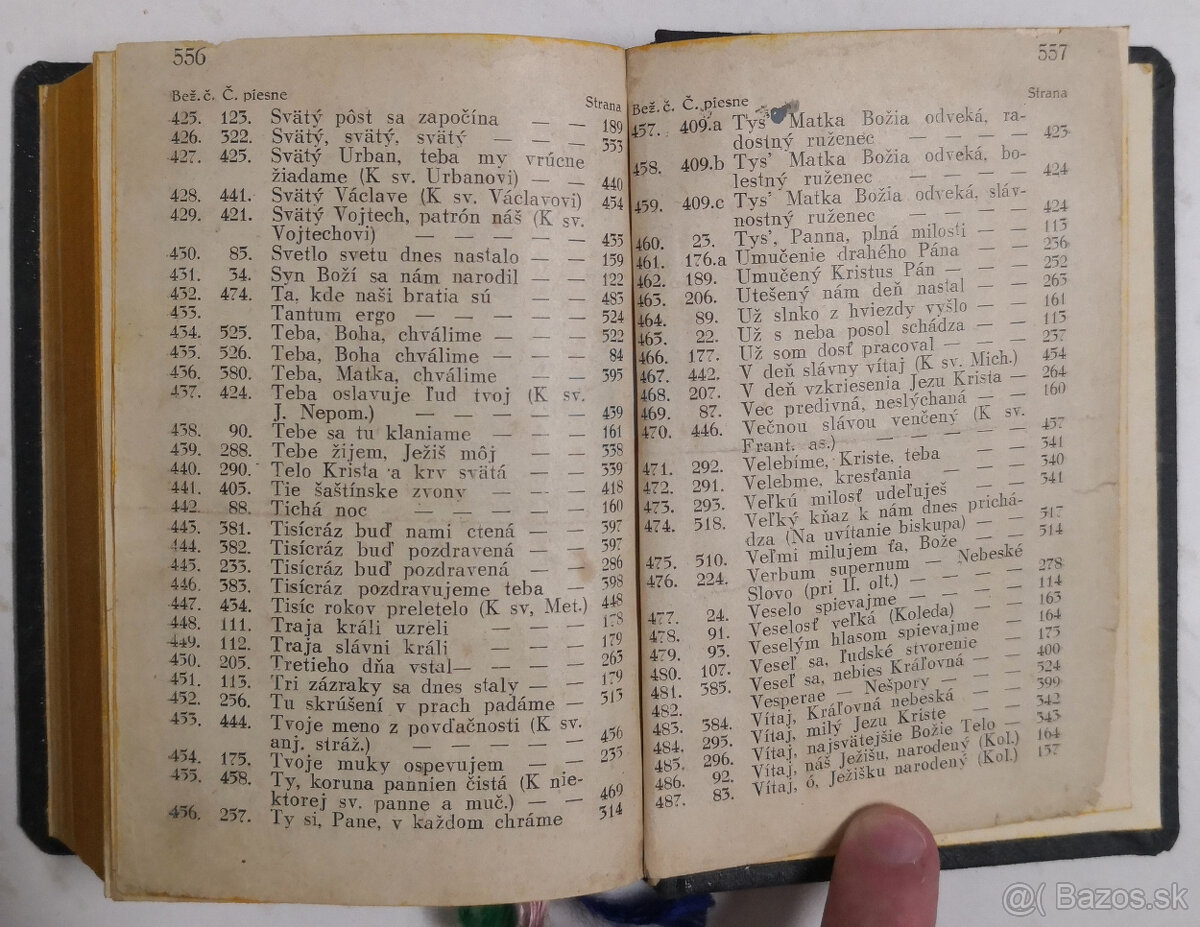 556
Bež. č. Č. piesne Strana
425. 123. Svätý pôst sa započína — — 189
426. 322. Svätý, svätý, svätý — — — 353
427. 425. Svätý Urban, teba my vrúcne
žiadame (K sv. Urbanovi) — — 440
428. 441. Svätý Václave (K sv. Václavovi) 454
429. 421. Svätý Vojtech, patrón náš (K sv.
Vojtechovi) — — — — — 435
430. 85. Svetlo svetu dnes nastalo — — 159
431. 34. Syn Boží sa nám narodil — — 122
432. 474. Ta, kde naši bratia sú — — 483
433. Tantum ergo — — — — 524
434. 525. Teba, Boha, chválime — — — 522
435. 526. Teba, Boha chválime — — — 84
436. 380. Teba, Matka, chválime — — 395
437. 424. Teba oslavuje ľud tvoj (K sv.
J. Nepom.) — — — — — 439
438. 90. Tebe sa tu klaniame — — — 161
439. 288. Tebe žijem, Ježiš môj — — — 338
440. 290. Telo Krista a krv svätá — — 339
441. 405. Tie šaštínske zvony — — — 418
442. 88. Tichá noc — — — — — 160
443. 381. Tisícráz buď nami ctená — — 397
444. 382. Tisícráz buď pozdravená — — 397
445. 233. Tisícráz buď pozdravená — — 286
446. 383. Tisícráz pozdravujeme teba — 398
447. 434. Tisíc rokov preletelo (K sv, Met.) 448
448. 111. Traja králi uzreli — — — 178
449. 112. Traja slávni králi — — — 179
450. 205. Tretieho dňa vstal— — — — 263
451. 113. Tri zázraky sa dnes staly — — 179
452. 256. Tu skrúšení v prach padáme — 313
453. 444. Tvoje meno z povďačnosti (K sv.
anj. stráž.) — — — — — 456
454. 175. Tvoje muky ospevujem — — 235
455. 458. Ty, koruna pannien čistá (K nie-
ktorej sv. panne a muč.) — — 469
456. 257. Ty si, Pane, v každom chráme 314
557
Bež. č. Č. piesne Strana
457. 409.a Tys' Matka Božia odveká, ra-
dostný ruženec — — — — 423
458. 409.b Tys' Matka Božia odveká, bo-
lestný ruženec — — — — 424
459. 409.c Tys' Matka Božia odveká, sláv-
nostný ruženec — — — — 424
460. 23. Tys', Panna, plná milosti — — 113
461. 176.a Umučenie drahého Pána — — 236
462. 189. Umučený Kristus Pán — — — 252
463. 206. Utešený nám deň nastal — — 263
464. 89. Už slnko z hviezdy vyšlo — — 161
465. 22. Už s neba posol schádza — — 113
466. 177. Už som dosť pracoval — — — 237
467. 442. V deň slávny vítaj (K sv. Mich.) 454
468. 207. V deň vzkriesenia Jezu Krista — 264
469. 87. Vec predivná, neslýchaná — — 160
470. 446. Večnou slávou venčený (K sv.
Frant. as.) — — — — — 457
471. 292. Velebíme, Kriste, teba — — 341
472. 291. Velebme, kresťania — — — 340
473. 293. Veľkú milosť udeľuješ — — 341
474. 518. Veľký kňaz k nám dnes prichá-
dza (Na uvítanie biskupa) — — 517
475. 510. Veľmi milujem ťa, Bože — — 514
476. 224. Verbum supernum — Nebeské
Slovo (pri II. olt.) — — — — 278
477. 24. Veselo spievajme — — — — 114
478. 91. Veselosť veľká (Koleda) — — 163
479. 93. Veselým hlasom spievajme — — 164
480. 107. Veseľ sa, ľudské stvorenie — 175
481. 385. Veseľ sa, nebies Kráľovná — — 400
482. Vesperae — Nešpory — — — 524
483. 384. Vítaj, Kráľovná nebeská — — 399
484. 295. Vítaj, milý Jezu Kriste — — 342
485. 296. Vítaj, najsvätejšie Božie Telo — 343
486. 92. Vítaj, náš Ježišu, narodený (Kol.) 164
487. 83. Vítaj, ó, Ježišku narodený (Kol.) 157
@( Bazos.sk